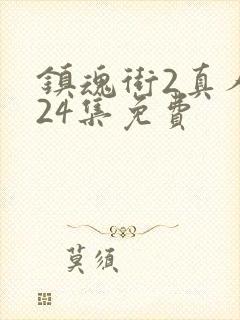 鎮魂街2真人
24集免費
莫須